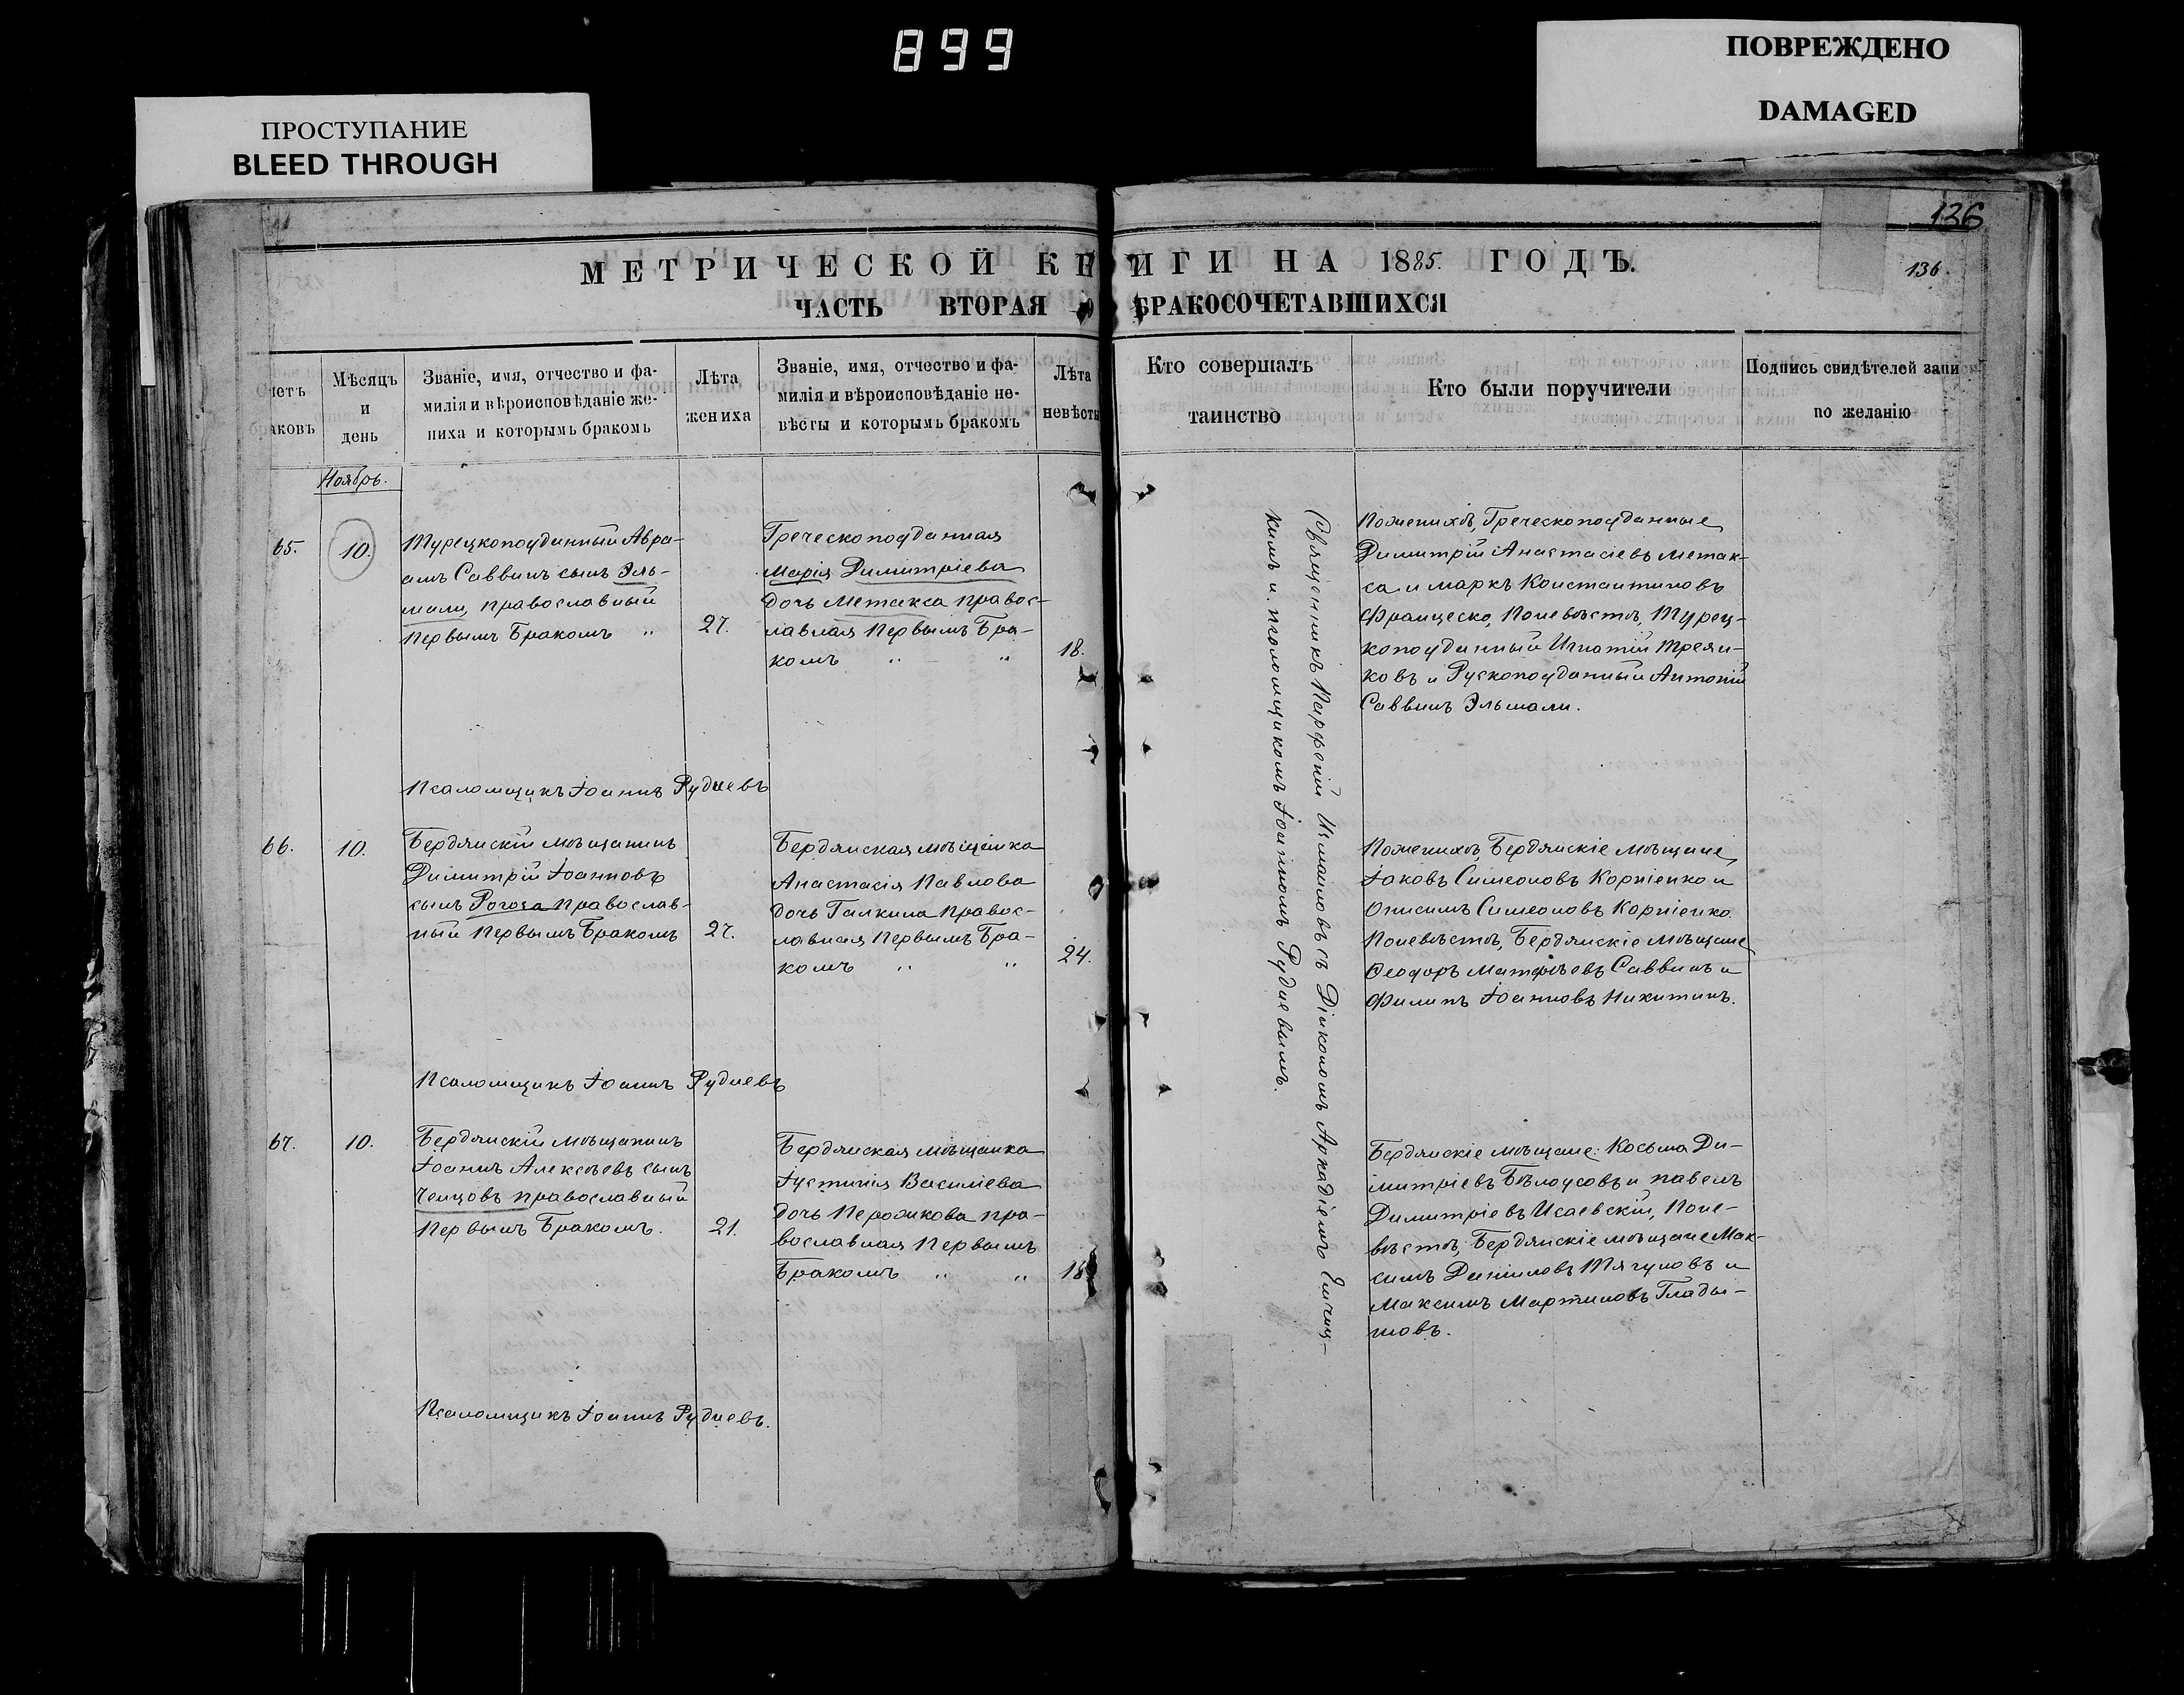 899
ПРОСТУПАНИЕ
BLEED THROUGH
ПОВРЕЖДЕНО
DAMAGED
136
МЕТРИЧЕСКОЙ КНИГИ НА 1885. ГОДЪ.
136.
ЧАСТЬ ВТОРАЯ О БРАКОСОЧЕТАВШИХСЯ
Счетъ
браковъ
Мѣсяцъ
и
день
Званіе, имя, отчество и фа-
милія и вѣроисповѣданіе же-
ниха и которымъ бракомъ
Лѣта
жениха
Званіе, имя, отчество и фа-
милія и вѣроисповѣданіе не-
вѣсты и которымъ бракомъ
Лѣта
невѣсты
Кто совершалъ
таинство
Кто были поручители
Подпись свидѣтелей запи
по желанію
Ноябрь.
65.
10.
Турецкоподданный Авра-
амъ Саввинъ сынъ Эль-
мали, православный
Первымъ Бракомъ "
27.
Греческоподданная
Марія Димитріева
дочь Метакса правос-
лавная Первымъ Бра-
комъ " "
18.
Поженихѣ, Греческоподданные
Димитрій Анастасіевъ Метак-
са и Маркъ Константиновъ
Франческо, Поневѣстѣ, Турец-
коподданный Игнатій
и Рускоподданный Антоній
Саввинъ Эльмали.
Псаломщикъ Іоаннъ Рудневъ
66.
10.
Бердянскій мѣщанинъ
Димитрій Іоанновъ
сынъ Рогоза православ-
ный Первымъ Бракомъ
27.
Бердянская мѣщанка
Анастасія Павлова
дочь Галкина правос-
лавная Первымъ Бра-
комъ " "
24.
Поженихѣ, Бердянскіе мѣщане
Іаковъ Симеоновъ Корніенко и
Онисимъ Симеоновъ Корніенко.
Поневѣстѣ, Бердянскіе мѣщане
Ѳеодоръ Матфѣевъ Саввинъ и
Филипъ Іоанновъ Никитинъ.
Псаломщикъ Іоаннъ Рудневъ
67.
10.
Бердянскій мѣщанинъ
Іоаннъ Алексѣевъ сынъ
Ченцовъ православный
Первымъ Бракомъ.
21.
Бердянская мѣщанка
Іустинія Василіева
дочь Перожкова пра-
вославная Первымъ
Бракомъ " "
18
Бердянскіе мѣщане: Косьма Ди-
митріевъ Бѣлоусовъ и Павелъ
Димитріевъ Исаевскій, Поне-
вѣстѣ, Бердянскіе мѣщане Мак-
симъ Даниловъ Тягуновъ и
Максимъ Мартиновъ Глады-
шовъ.
Псаломщикъ Іоаннъ Рудневъ.
Священникъ Парфеній съ Діакономъ Аркадіемъ
кимъ и псаломщикомъ Іоанномъ Рудневымъ.